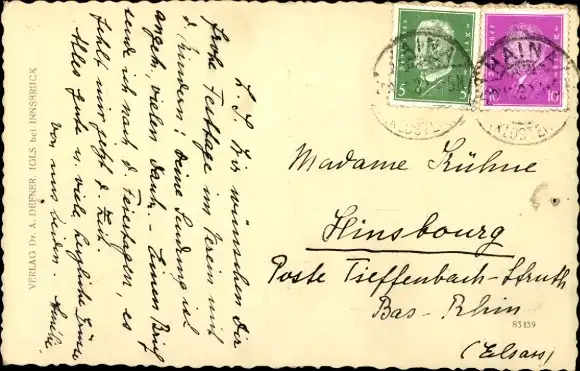 L. S. Wir wünschen Dir
frohe Festtage im Verein mit
d. Kindern! Deine Sendung ist
angek., vielen Dank. – Einen Brief
sende ich nach d. Feiertagen, es
fehlt mir jetzt d. Zeit.
Alles Gute u. viele herzliche Grüsse
von uns beiden.
Madame Kühne
Hinsbourg
Poste Tieffenbach-Struth
Bas-Rhin
(Elsass)
83139
VERLAG Dr. A. DEFNER, IGLS bei INNSBRUCK
5 5
10
HAINA
(KLOSTER)
HAINA
(KLOSTER)